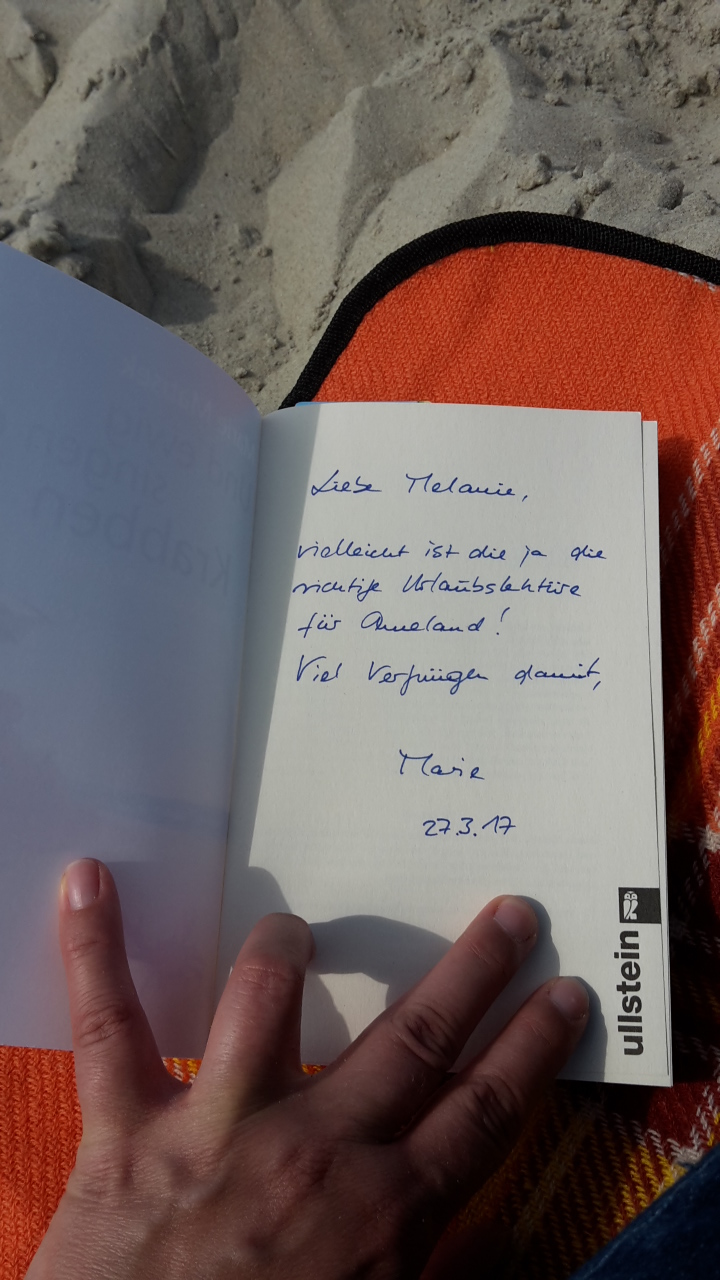 Liebe Melanie,
vielleicht ist die ja die
richtige Urlaubslektüre
für Ameland!
Viel Vergnügen damit,
Marie
27.3.17
ullstein
Krabben